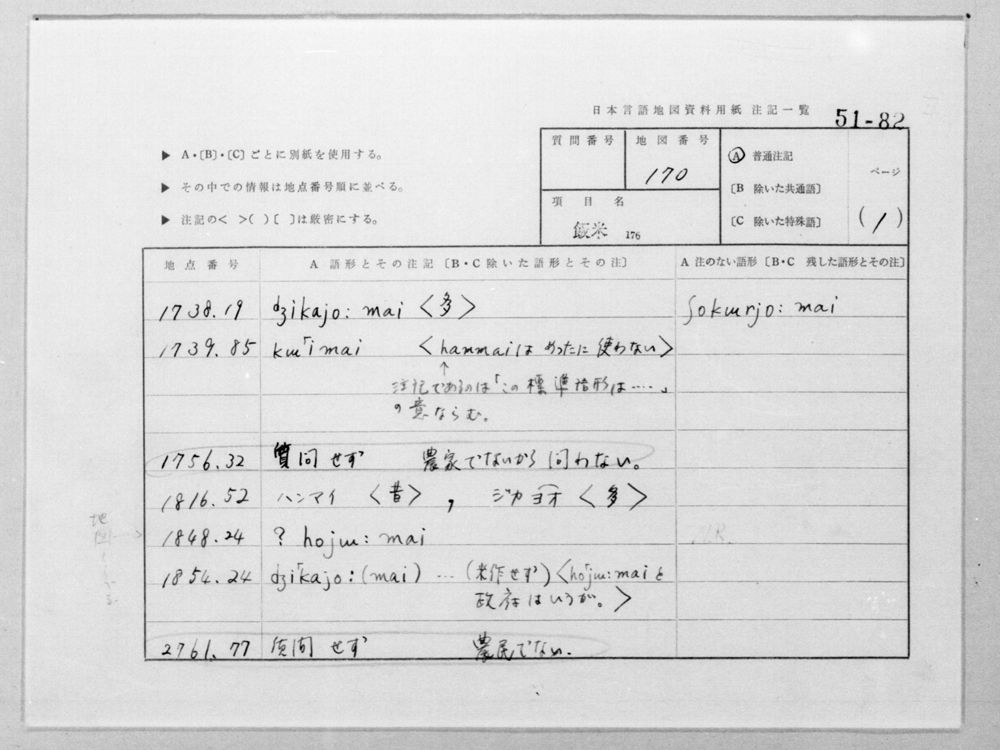 日本言語地図資料用紙 注記一覧
51-82
▶ A・〔B〕・〔C〕ごとに別紙を使用する。
▶ その中での情報は地点番号順に並べる。
▶ 注記の< >( )[ ]は厳密にする。
質問番号 地図番号
170
項目名
飯米 176
Ⓐ 普通注記
〔B 除いた共通語〕
〔C 除いた特殊語〕
ページ
(1)
地点番号 A 語形とその注記〔B・C 除いた語形とその注〕 A 注のない語形〔B・C 残した語形とその注〕
1738.19 ʤikajo: mai <多> ʃokɯrjo: mai
1739.85 kɯ˹imai <hammaiは めったに使わない>
↑
注記であるのは「この標準語形は……」
の意ならむ。
1756.32 質問せず 農家でないから問わない。
1816.52 ハンマイ <昔>, ジカヨオ <多>
1848.24 ? hojɯ: mai N.R.
地図
1854.24 ʤi˹kajo:(mai) … (米作せず) <ho˹jɯ:maiと
政府はいうが。>
2761.77 質問せず 農民でない.